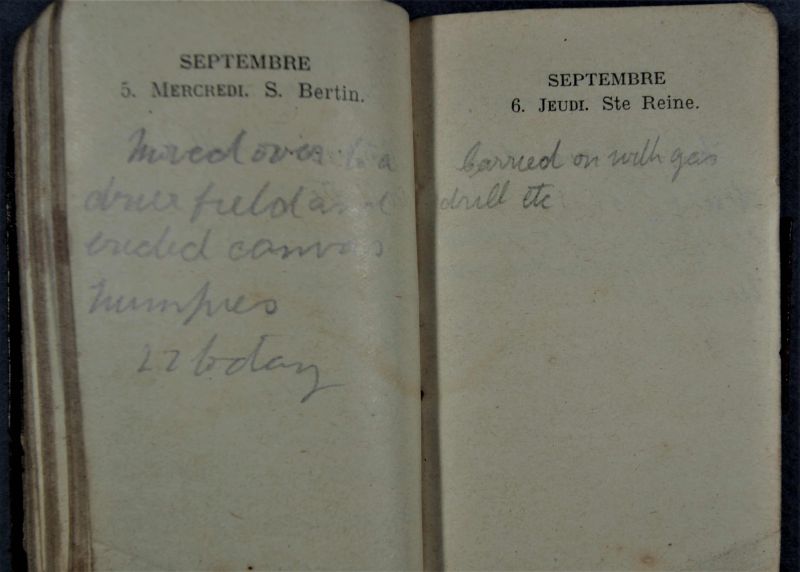 SEPTEMBRE
5. MERCREDI. S. Bertin.
Moved over to a
drier field and
ereded canvas
humpies
22 today
SEPTEMBRE
6. JEUDI. Ste Reine.
Carried on with gas
drill etc